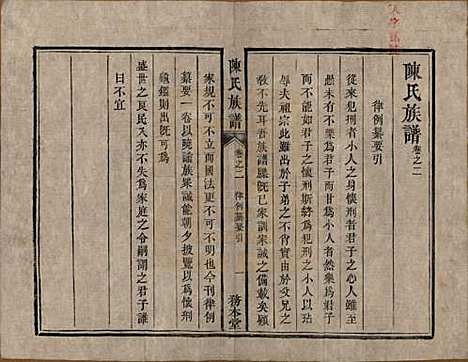 陳氏族譜卷之二
律例纂要引
從來犯刑者小人之身懷刑者君子之心人雖至
愚未有不樂爲君子而甘爲小人者然樂爲君子
而不能如君子之懷刑斯終爲犯刑之小人以玷
辱夫祖宗此雖出於子弟之不肖實由於父兄之
教不先耳吾族譜牒旣已家訓家誡之備載矣顧
陳氏族譜
卷之二
律例纂要引
一
務本堂
家規不立而國法更不可不明也今刊律例
纂要一卷以曉諭族衆誠能朝夕披覽以爲懷刑
龜鑑則出旣可爲
盛世之良民入亦不失爲家庭之令嗣謂之君子誰
曰不宜